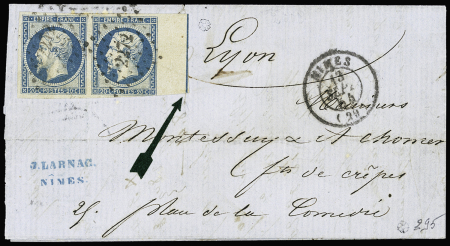 EMPIRE FRANC. EMPIRE FRANC.
20 c. POSTES 20 c. 20 c. POSTES 20 c.
Lyon
NIMES
12
SEPT
(29)
Messieurs
Montessuy & Chomer
fts de crêpes
25 place de la Comédie
J. LARNAC.
NÎMES
295